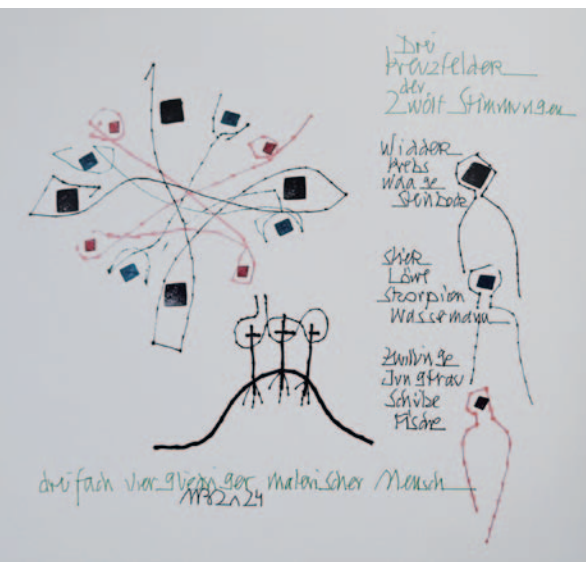 Drei
Kreuzfelder
der
Zwölf Stimmungen
Widder
Krebs
Waage
Steinbock
Stier
Löwe
Skorpion
Wassermann
Zwillinge
Jungfrau
Schütze
Fische
dreifach viergliedriger malerischer Mensch